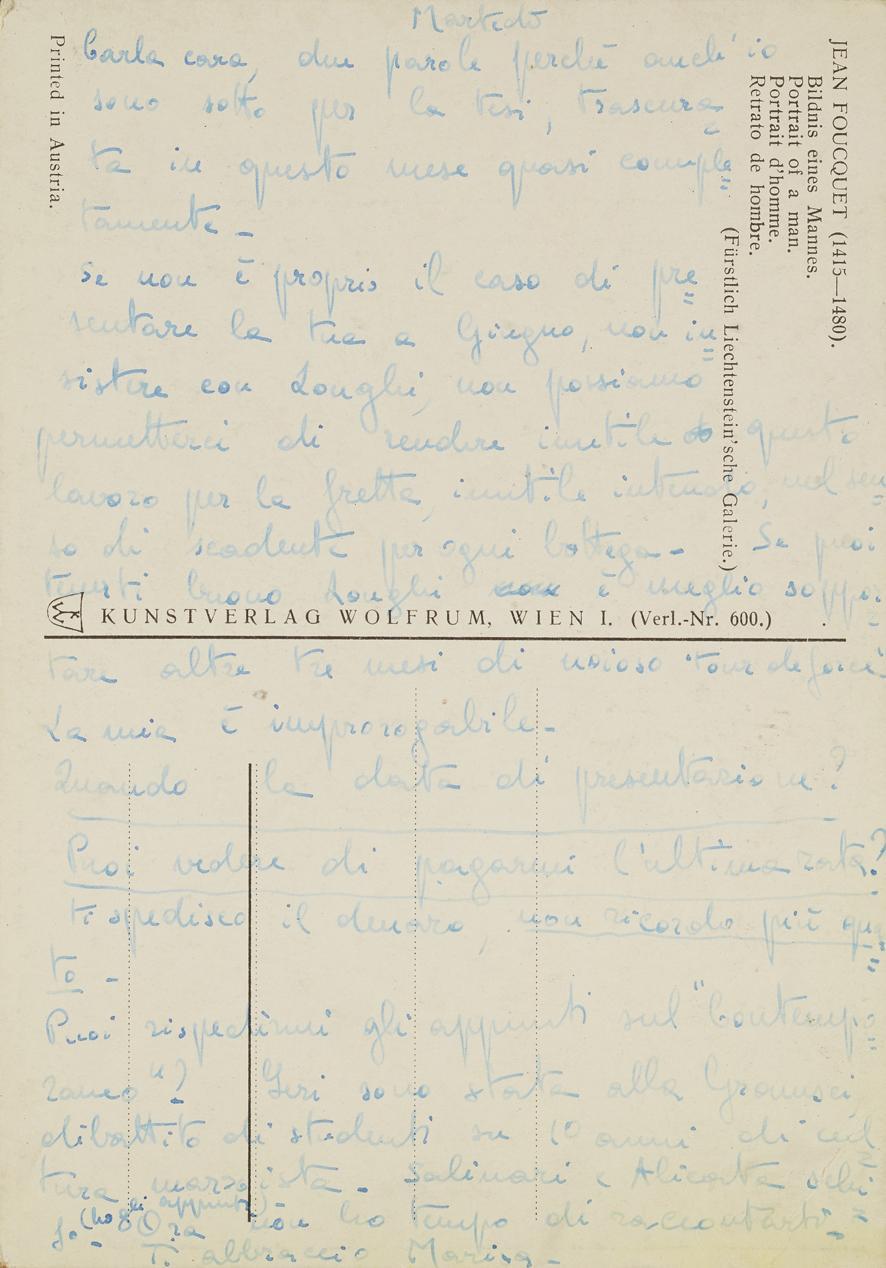 Martedì
Carla cara, due parole perché anch'io
sono sotto per la tesi, trascura=
ta in questo mese quasi comple=
tamente -
Se non è proprio il caso di pre=
sentare la tua a Giugno, non in=
sistere con Longhi, non possiamo
permetterci di rendere inutile questo
lavoro per la fretta, inutile intendo, nel sen=
so di scadente per ogni bottega - Se puoi
tenerti buono Longhi è meglio soppor=
tare altre tre mesi di noioso "tour de force".
La mia è improrogabile -
Quando la data di presentazione?
Puoi vedere di pagarmi l'ultima rata?
ti spedisco il denaro, non ricordo più qu=
to -
Puoi rispedirmi gli appunti sul "Contempo=
raneo"? Ieri sono stata alla Gramsci,
dibattito di studenti su 10 anni di cul=
tura marxista - Salinari e Alicata schi=
fo - (ho gli appunti) - Ora non ho tempo di raccontarti -
Ti abbraccio Marisa -
JEAN FOUCQUET (1415—1480).
Bildnis eines Mannes.
Portrait of a man.
Portrait d'homme.
Retrato de hombre.
(Fürstlich Liechtenstein'sche Galerie.)
Printed in Austria.
KWW
KUNSTVERLAG WOLFRUM, WIEN I. (Verl.-Nr. 600.)